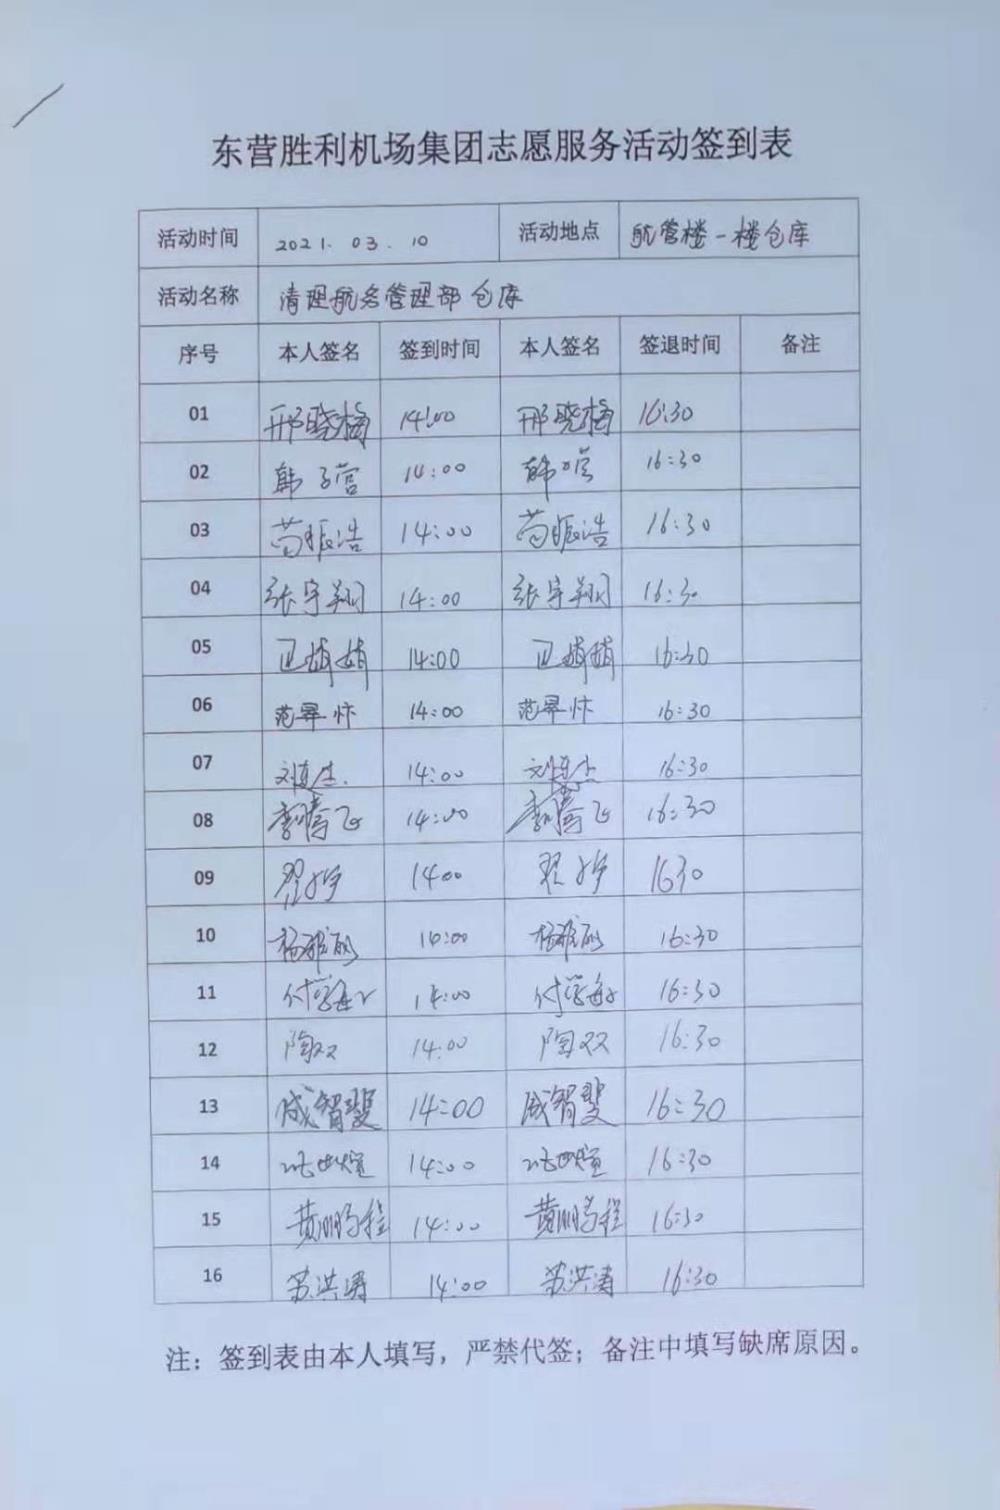 东营胜利机场集团志愿服务活动签到表
活动时间 2021.03.10 活动地点 航管楼一楼仓库
活动名称 清理航务管理部仓库
序号 本人签名 签到时间 本人签名 签退时间 备注
01 邢晓梅 14:00 邢晓梅 16:30
02 韩子营 14:00 韩子营 16:30
03 苟振浩 14:00 苟振浩 16:30
04 张宇翔 14:00 张宇翔 16:30
05 卫娟娟 14:00 卫娟娟 16:30
06 范昇忭 14:00 范昇忭 16:30
07 14:00 16:30
08 李腾飞 14:00 李腾飞 16:30
09 14:00 1630
10 杨雅丽 16:30
11 14:00 16:30
12 陶双 14:00 陶双 16:30
13 成智斐 14:00 成智斐 16:30
14 14:00 16:30
15 黄鹏程 14:00 黄鹏程 16:30
16 苏洪涛 14:00 苏洪涛 16:30
注：签到表由本人填写，严禁代签；备注中填写缺席原因。